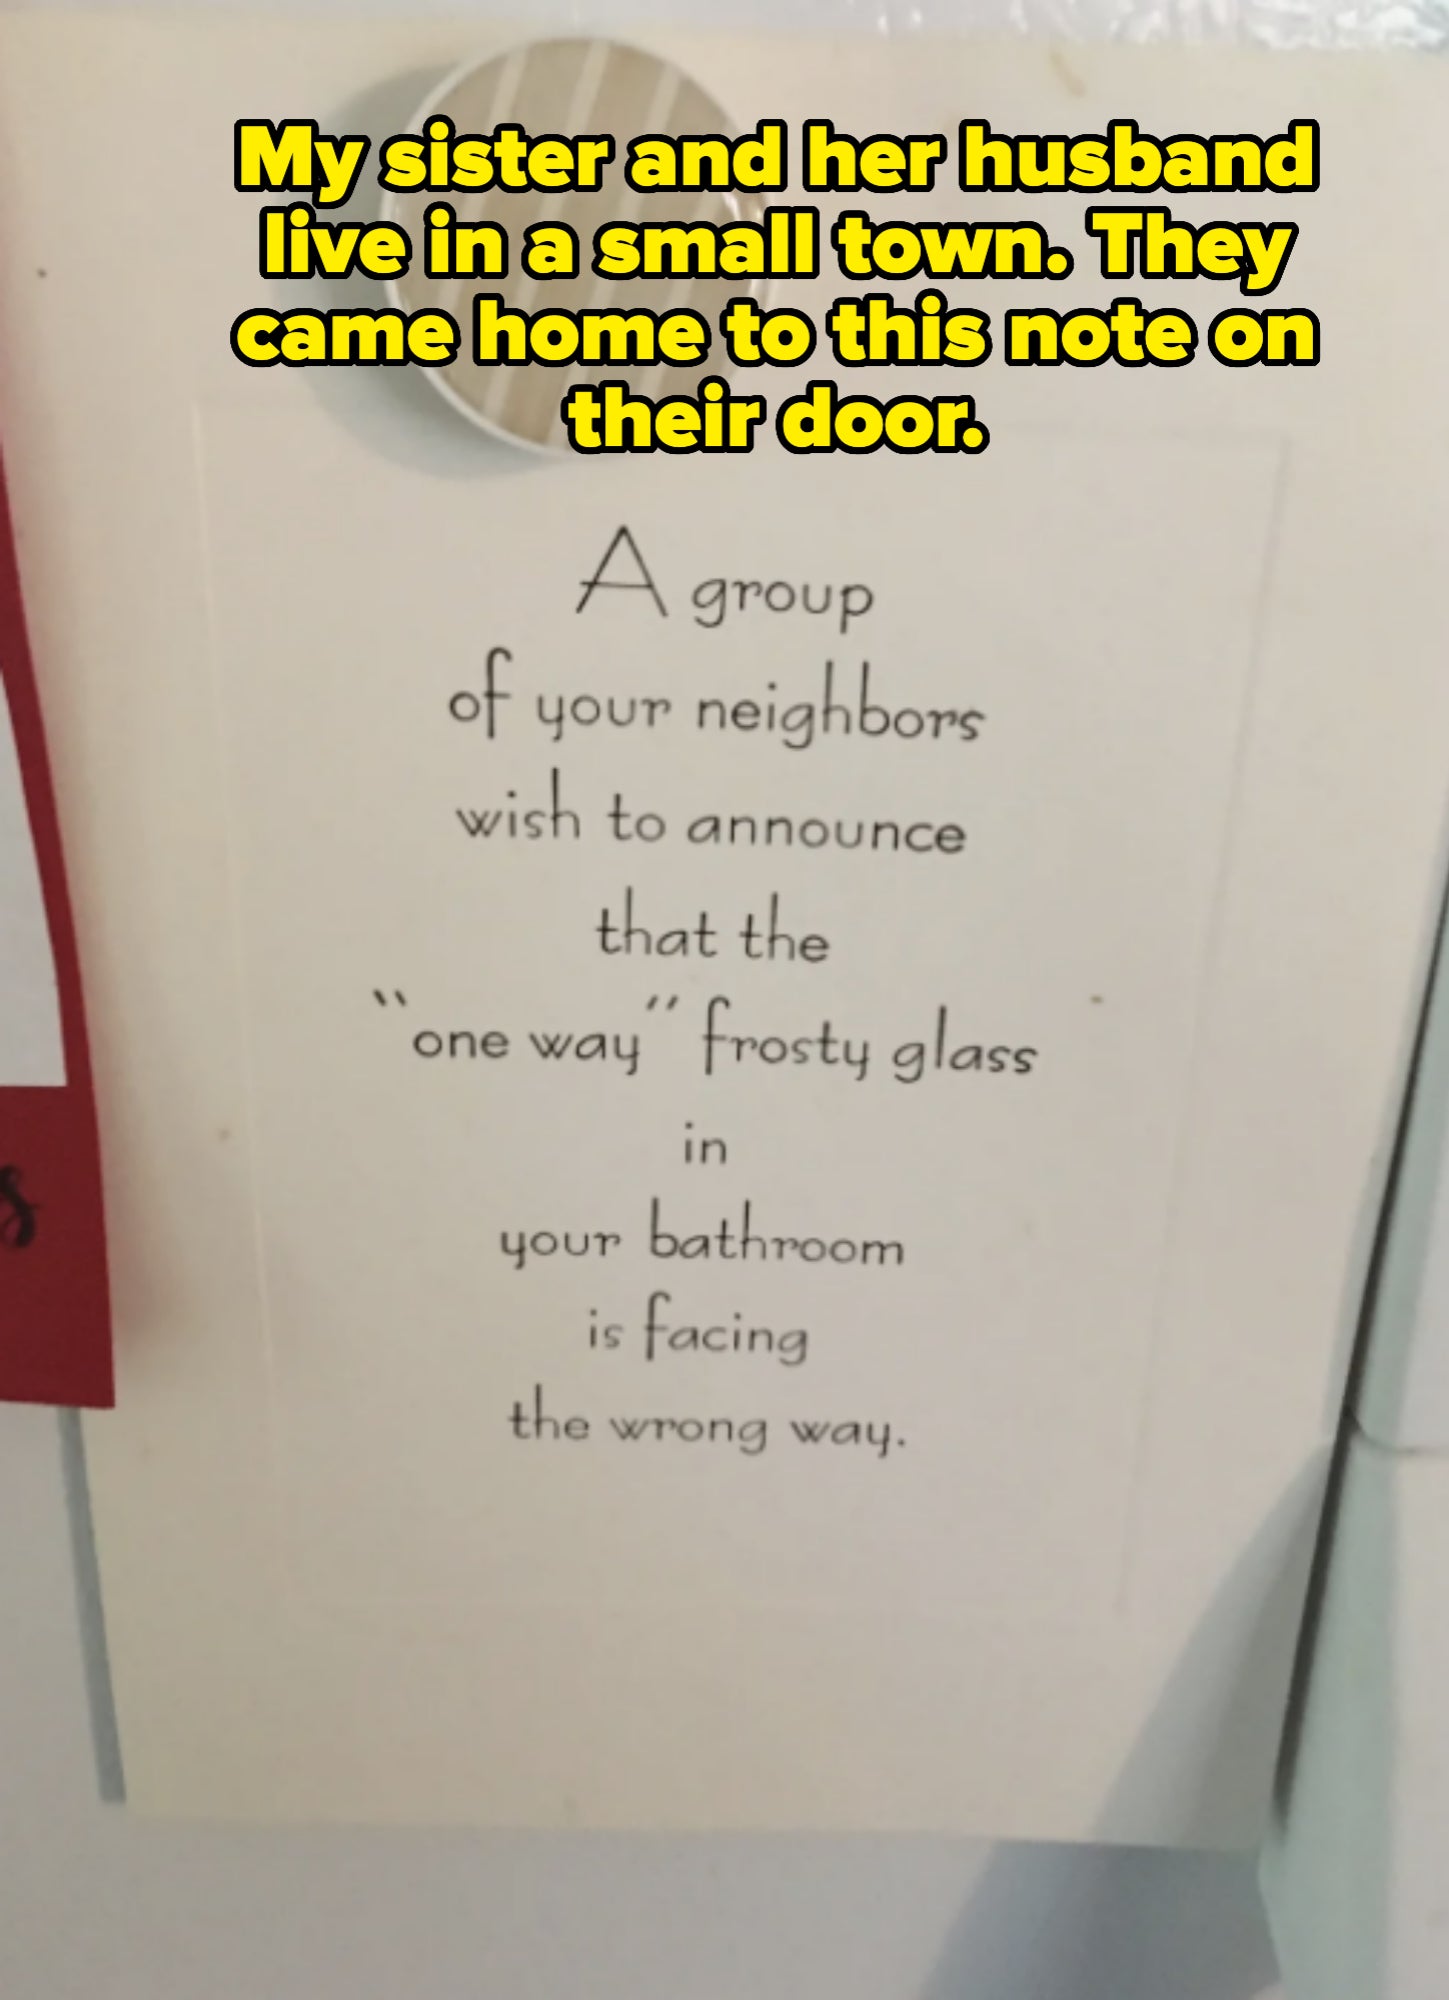 My sister and her husband
live in a small town. They
came home to this note on
their door.
A group
of your neighbors
wish to announce
that the
"one way" frosty glass
in
your bathroom
is facing
the wrong way.
s